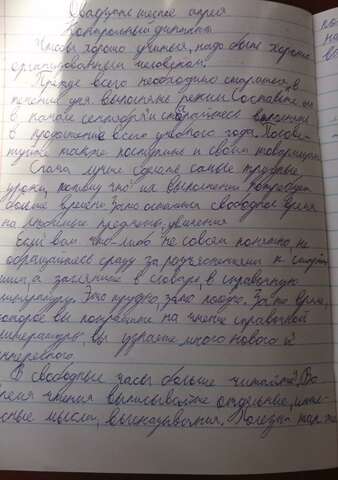 Двадцать шестое апреля
Контрольный диктант
Чтобы хорошо учиться, надо быть хорошо
организованным человеком.
Прежде всего необходимо стараться в
течение дня выполнять режим. Составьте его
в начале сентября и старайтесь выполнять
в продолжение всего учебного года. Посове-
туйте также поступить и своим товарищам.
Снача лучше сделать самые трудные
уроки, потому что их выполнение потребует
больше времени. Зато останется свободное время
на любимые предметы, увлечения
Если вам что-либо не совсем понятно, не
обращайтесь сразу за разъяснениями к старш
им, а загляните в словарь, в справочную
литературу. Это трудно, зато полезно. За то время,
которое вы потратите на чтение справочной
литературы вы узнаете много нового и
интересного.
В свободные часы больше читайте. Во
время чтения выписывайте отдельные, инте-
сные мысли, высказывания. Полезно также